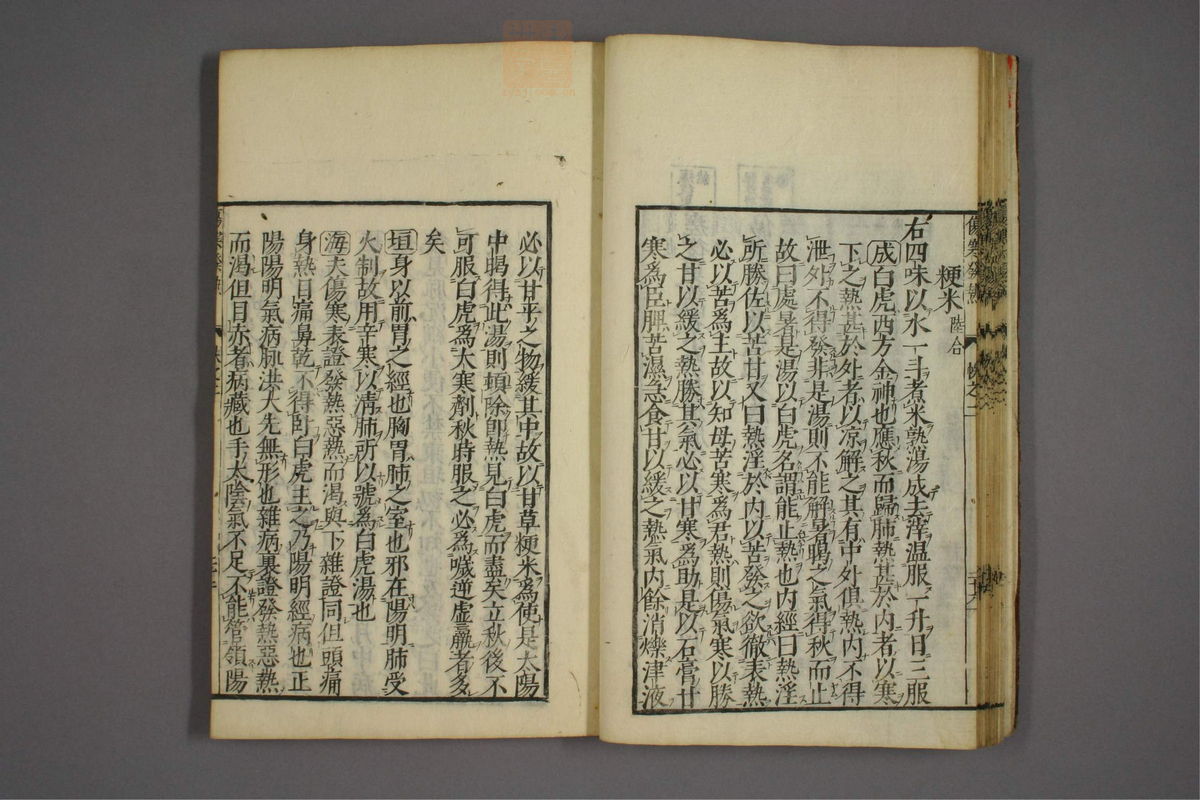 粳米 陸合
右四味以水一斗煮米熟湯成去滓温服一升日三服
成白虎西方金神也應秋而歸肺熱甚於内者以寒
下之熱甚於外者以凉解之其有中外俱熱内不得
泄外不得發非是湯則不能解暑暍之氣得秋而止
故曰處暑是湯以白虎名謂能止熱也内經曰熱淫
所勝佐以苦甘又曰熱淫於内以苦發之欲徹表熱
必以苦爲主故以知母苦寒爲君熱則傷氣寒以勝
之甘以緩之熱勝其氣必以甘寒爲助是以石膏甘
寒爲臣脾苦濕急食甘以緩之熱氣内餘消爍津液
必以甘平之物緩其中故以甘草粳米爲使是太陽
中暍得此湯則頓除即熱見白虎而盡矣立秋後不
可服白虎爲大寒劑秋時服之必爲噦逆虚羸者多
矣
垣身以前胃之經也胸胃肺之室也邪在陽明肺受
火制故用辛寒以清肺所以號爲白虎湯也
海夫傷寒表證發熱惡熱而渇與下雜證同但頭痛
身熱目痛鼻乾不得臥白虎主之乃陽明經病也正
陽陽明氣病脈洪大先無形也雜病裏證發熱惡熱
而渇但目赤者病藏也手太陰氣不足不能管領陽